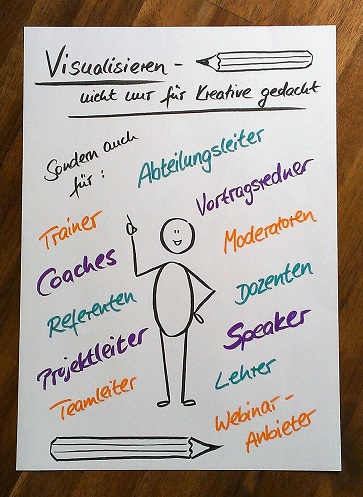 Visualisieren -
nicht nur für Kreative gedacht
Sondern auch
für:
Abteilungsleiter
Vortragsredner
Trainer
Moderatoren
Coaches
Dozenten
Referenten
Speaker
Projektleiter
Lehrer
Teamleiter
Webinar-
Anbieter